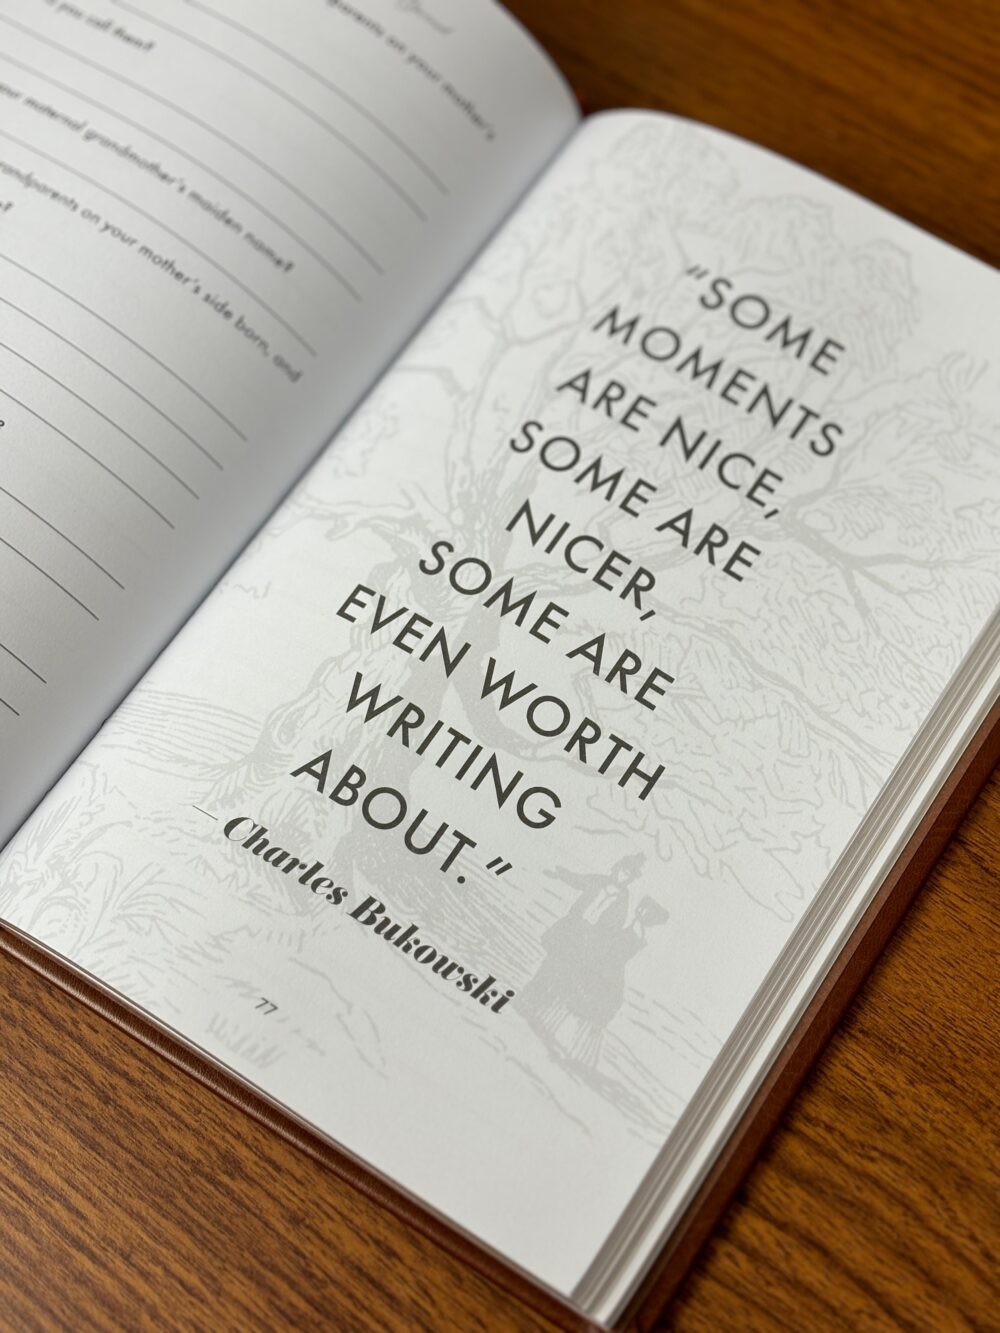 parents on your mother's
you call them?
your maternal grandmother's maiden name?
grandparents on your mother's side born, and
"SOME
MOMENTS
ARE NICE,
SOME ARE
NICER,
SOME ARE
EVEN WORTH
WRITING
ABOUT."
—Charles Bukowski
77